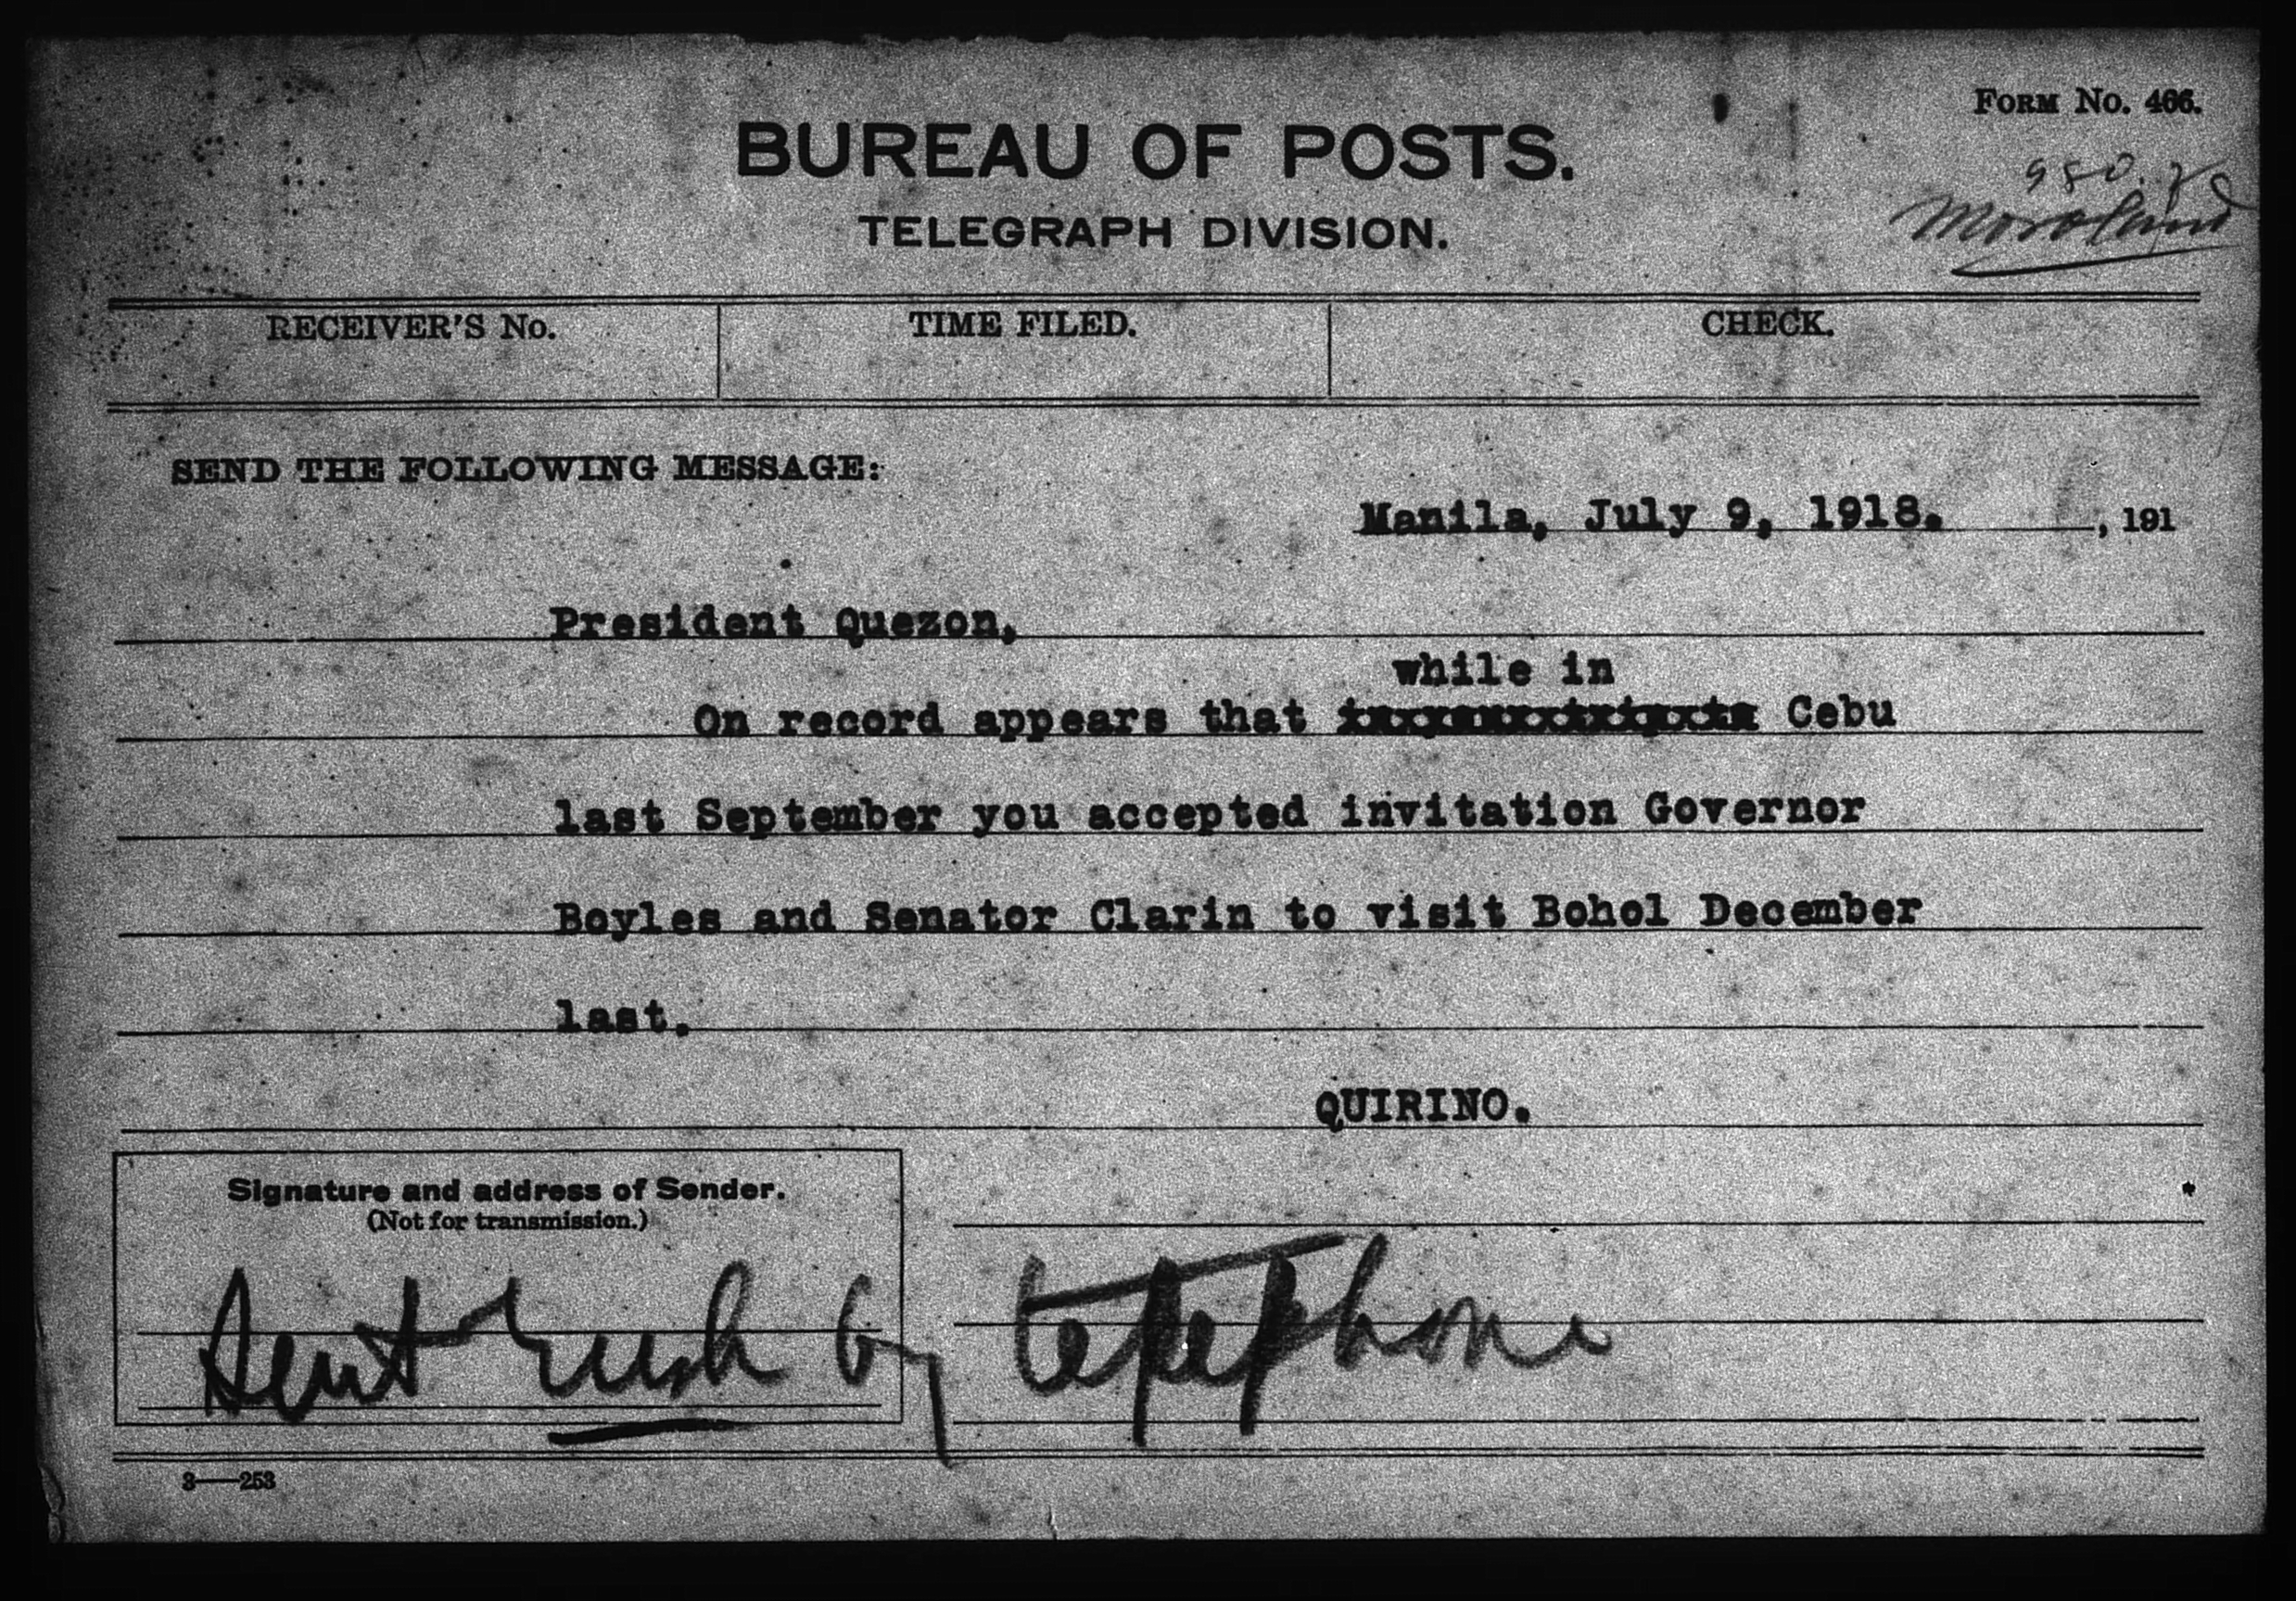 FORM NO. 466.
BUREAU OF POSTS.
TELEGRAPH DIVISION.
Moroland
RECEIVER'S No. TIME FILED. CHECK.
SEND THE FOLLOWING MESSAGE:
Manila, July 9, 1918. , 191
President Quezon,
while in
On record appears that Cebu
last September you accepted invitation Governor
Boyles and Senator Clarin to visit Bohol December
last.
QUIRINO.
Signature and address of Sender.
(Not for transmission.)
Sent rush by telephone
3—253